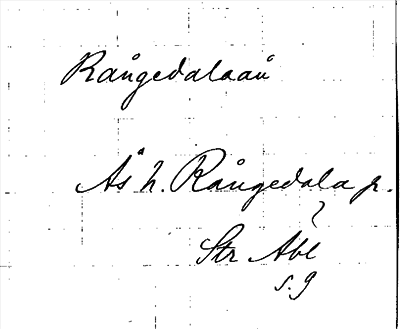 Rångedalaån
Ås h. Rångedala p.
Str Åbl
s. 9